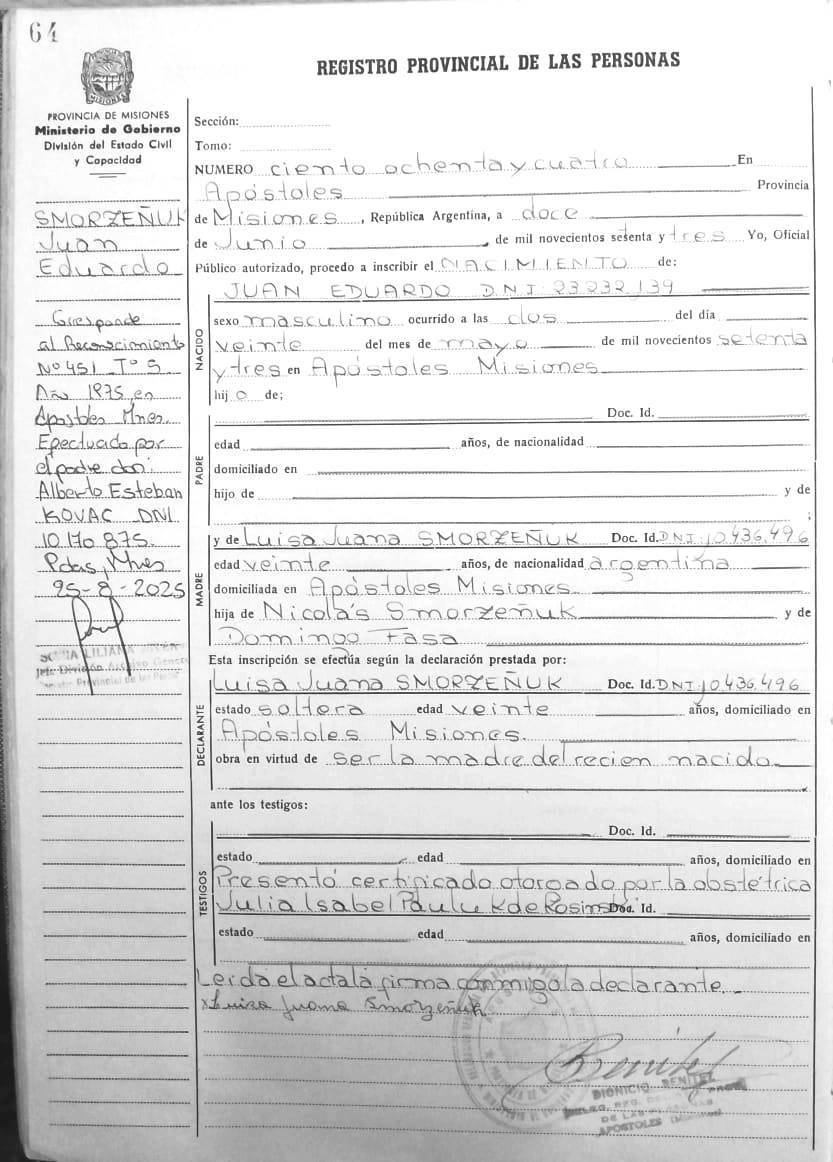 64
REGISTRO PROVINCIAL DE LAS PERSONAS
PROVINCIA DE MISIONES
Ministerio de Gobierno
División del Estado Civil
y Capacidad
SMORZEÑUK
Juan
Eduardo
Corresponde
al Reconocimiento
Nº 451 Tº 5
Año 1975 en
Apostoles Mnes.
Efectuado por
el padre don:
Alberto Esteban
KOVAC DNI
10.170.875.
Pdas, Mnes
25-8-2025
Sección:
Tomo:
NUMERO ciento ochenta y cuatro En
Apóstoles Provincia
de Misiones, República Argentina, a doce
de Junio de mil novecientos setenta y tres Yo, Oficial
Público autorizado, procedo a inscribir el NACIMIENTO de:
JUAN EDUARDO D.N.I. 23.232.139
NACIDO
sexo masculino ocurrido a las dos del día
veinte del mes de mayo de mil novecientos setenta
y tres en Apóstoles Misiones
hijo de;
PADRE
Doc. Id.
edad años, de nacionalidad
domiciliado en
hijo de y de
;
MADRE
y de Luisa Juana SMORZEÑUK Doc. Id. DNI: 10.436.496
edad veinte años, de nacionalidad argentina
domiciliada en Apóstoles Misiones
hija de Nicolás Smorzeñuk y de
Domingo Fasa
Esta inscripción se efectúa según la declaración prestada por:
DECLARANTE
Luisa Juana SMORZEÑUK Doc. Id. DNI 10.436.496
estado soltera edad veinte años, domiciliado en
Apóstoles Misiones.
obra en virtud de ser la madre del recien nacido
ante los testigos:
TESTIGOS
Doc. Id.
estado edad años, domiciliado en
Presentó certificado otorgado por la obstétrica
Julia Isabel Pauluk de Rosinski Doc. Id.
estado edad años, domiciliado en
Leída el acta la firma conmigo la declarante
x Luisa Juana Smorzeñuk
Benítez
DIONICIO BENITEZ
DE LAS
APOSTOLES (Misiones)